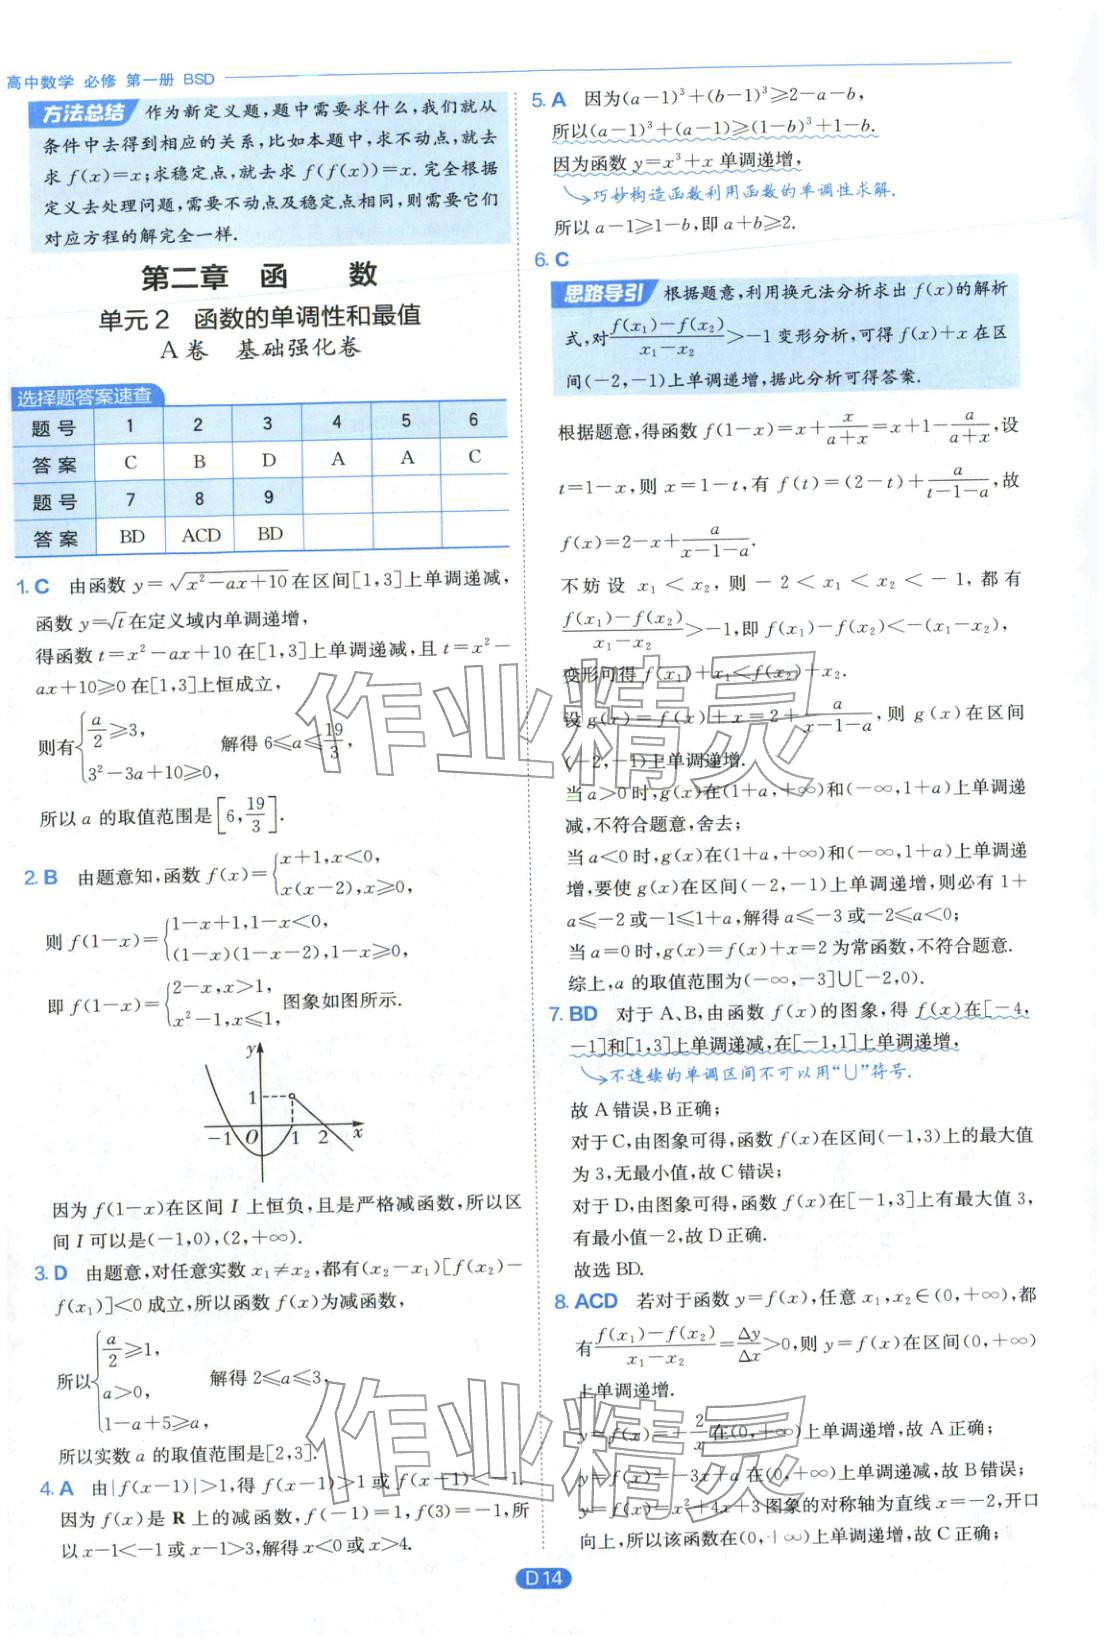 高中数学 必修 第一册 BSD
方法总结 作为新定义题,题中需要求什么,我们就从
条件中去得到相应的关系,比如本题中,求不动点,就去
求 f(x)=x;求稳定点,就去求 f(f(x))=x.完全根据
定义去处理问题,需要不动点及稳定点相同,则需要它们
对应方程的解完全一样.
第二章 函 数
单元2 函数的单调性和最值
A卷 基础强化卷
选择题答案速查
题号 1 2 3 4 5 6
答案 C B D A A C
题号 7 8 9
答案 BD ACD BD
1. C 由函数 y=√(x²-ax+10)在区间[1,3]上单调递减,
函数 y=√t在定义域内单调递增,
得函数 t=x²-ax+10在[1,3]上单调递减,且 t=x²-
ax+10≥0在[1,3]上恒成立,
则有{a/2≥3, 3²-3a+10≥0, 解得 6≤a≤19/3,
所以 a 的取值范围是[6,19/3].
2. B 由题意知,函数 f(x)={x+1,x<0, x(x-2),x≥0,
则 f(1-x)={1-x+1,1-x<0, (1-x)(1-x-2),1-x≥0,
即 f(1-x)={2-x,x>1, x²-1,x≤1, 图象如图所示.
y
1
-1 O 1 2 x
因为 f(1-x)在区间 I 上恒负,且是严格减函数,所以区
间 I 可以是(-1,0),(2,+∞).
3. D 由题意,对任意实数 x₁≠x₂,都有(x₂-x₁)[f(x₂)-
f(x₁)]<0成立,所以函数 f(x)为减函数,
所以{a/2≥1, a>0, 1-a+5≥a, 解得 2≤a≤3,
所以实数 a 的取值范围是[2,3].
4. A 由|f(x-1)|>1,得 f(x-1)>1或 f(x-1)<-1.
因为 f(x)是 R 上的减函数,f(-1)=1,f(3)=-1,所
以 x-1<-1或 x-1>3,解得 x<0或 x>4.
5. A 因为(a-1)³+(b-1)³≥2-a-b,
所以(a-1)³+(a-1)≥(1-b)³+1-b.
因为函数 y=x³+x 单调递增,
巧妙构造函数利用函数的单调性求解.
所以 a-1≥1-b,即 a+b≥2.
6. C
思路导引 根据题意,利用换元法分析求出 f(x)的解析
式,对(f(x₁)-f(x₂))/(x₁-x₂)>-1变形分析,可得 f(x)+x 在区
间(-2,-1)上单调递增,据此分析可得答案.
根据题意,得函数 f(1-x)=x+x/(a+x)=x+1-a/(a+x),设
t=1-x,则 x=1-t,有 f(t)=(2-t)+a/(t-1-a),故
f(x)=2-x+a/(x-1-a).
不妨设 x₁<x₂,则-2<x₁<x₂<-1,都有
(f(x₁)-f(x₂))/(x₁-x₂)>-1,即 f(x₁)-f(x₂)<-(x₁-x₂),
变形可得 f(x₁)+x₁<f(x₂)+x₂.
设 g(x)=f(x)+x=2+a/(x-1-a),则 g(x)在区间
(-2,-1)上单调递增.
当 a>0时,g(x)在(1+a,+∞)和(-∞,1+a)上单调递
减,不符合题意,舍去;
当 a<0时,g(x)在(1+a,+∞)和(-∞,1+a)上单调递
增,要使 g(x)在区间(-2,-1)上单调递增,则必有 1+
a≤-2或-1≤1+a,解得 a≤-3或-2≤a<0;
当 a=0时,g(x)=f(x)+x=2为常函数,不符合题意.
综上,a 的取值范围为(-∞,-3]∪[-2,0).
7. BD 对于A、B,由函数 f(x)的图象,得 f(x)在[-4,
-1]和[1,3]上单调递减,在[-1,1]上单调递增,
不连续的单调区间不可以用“∪”符号.
故 A 错误,B 正确;
对于 C,由图象可得,函数 f(x)在区间(-1,3)上的最大值
为 3,无最小值,故 C 错误;
对于 D,由图象可得,函数 f(x)在[-1,3]上有最大值 3,
有最小值-2,故 D 正确.
故选 BD.
8. ACD 若对于函数 y=f(x),任意 x₁,x₂∈(0,+∞),都
有(f(x₁)-f(x₂))/(x₁-x₂)=Δy/Δx>0,则 y=f(x)在区间(0,+∞)
上单调递增.
y=f(x)=-2/x在(0,+∞)上单调递增,故 A 正确;
y=f(x)=-3x+a 在(0,+∞)上单调递减,故 B 错误;
y=f(x)=x²+4x+3图象的对称轴为直线 x=-2,开口
向上,所以该函数在(0,+∞)上单调递增,故 C 正确;
D14
作业精灵
作业精灵